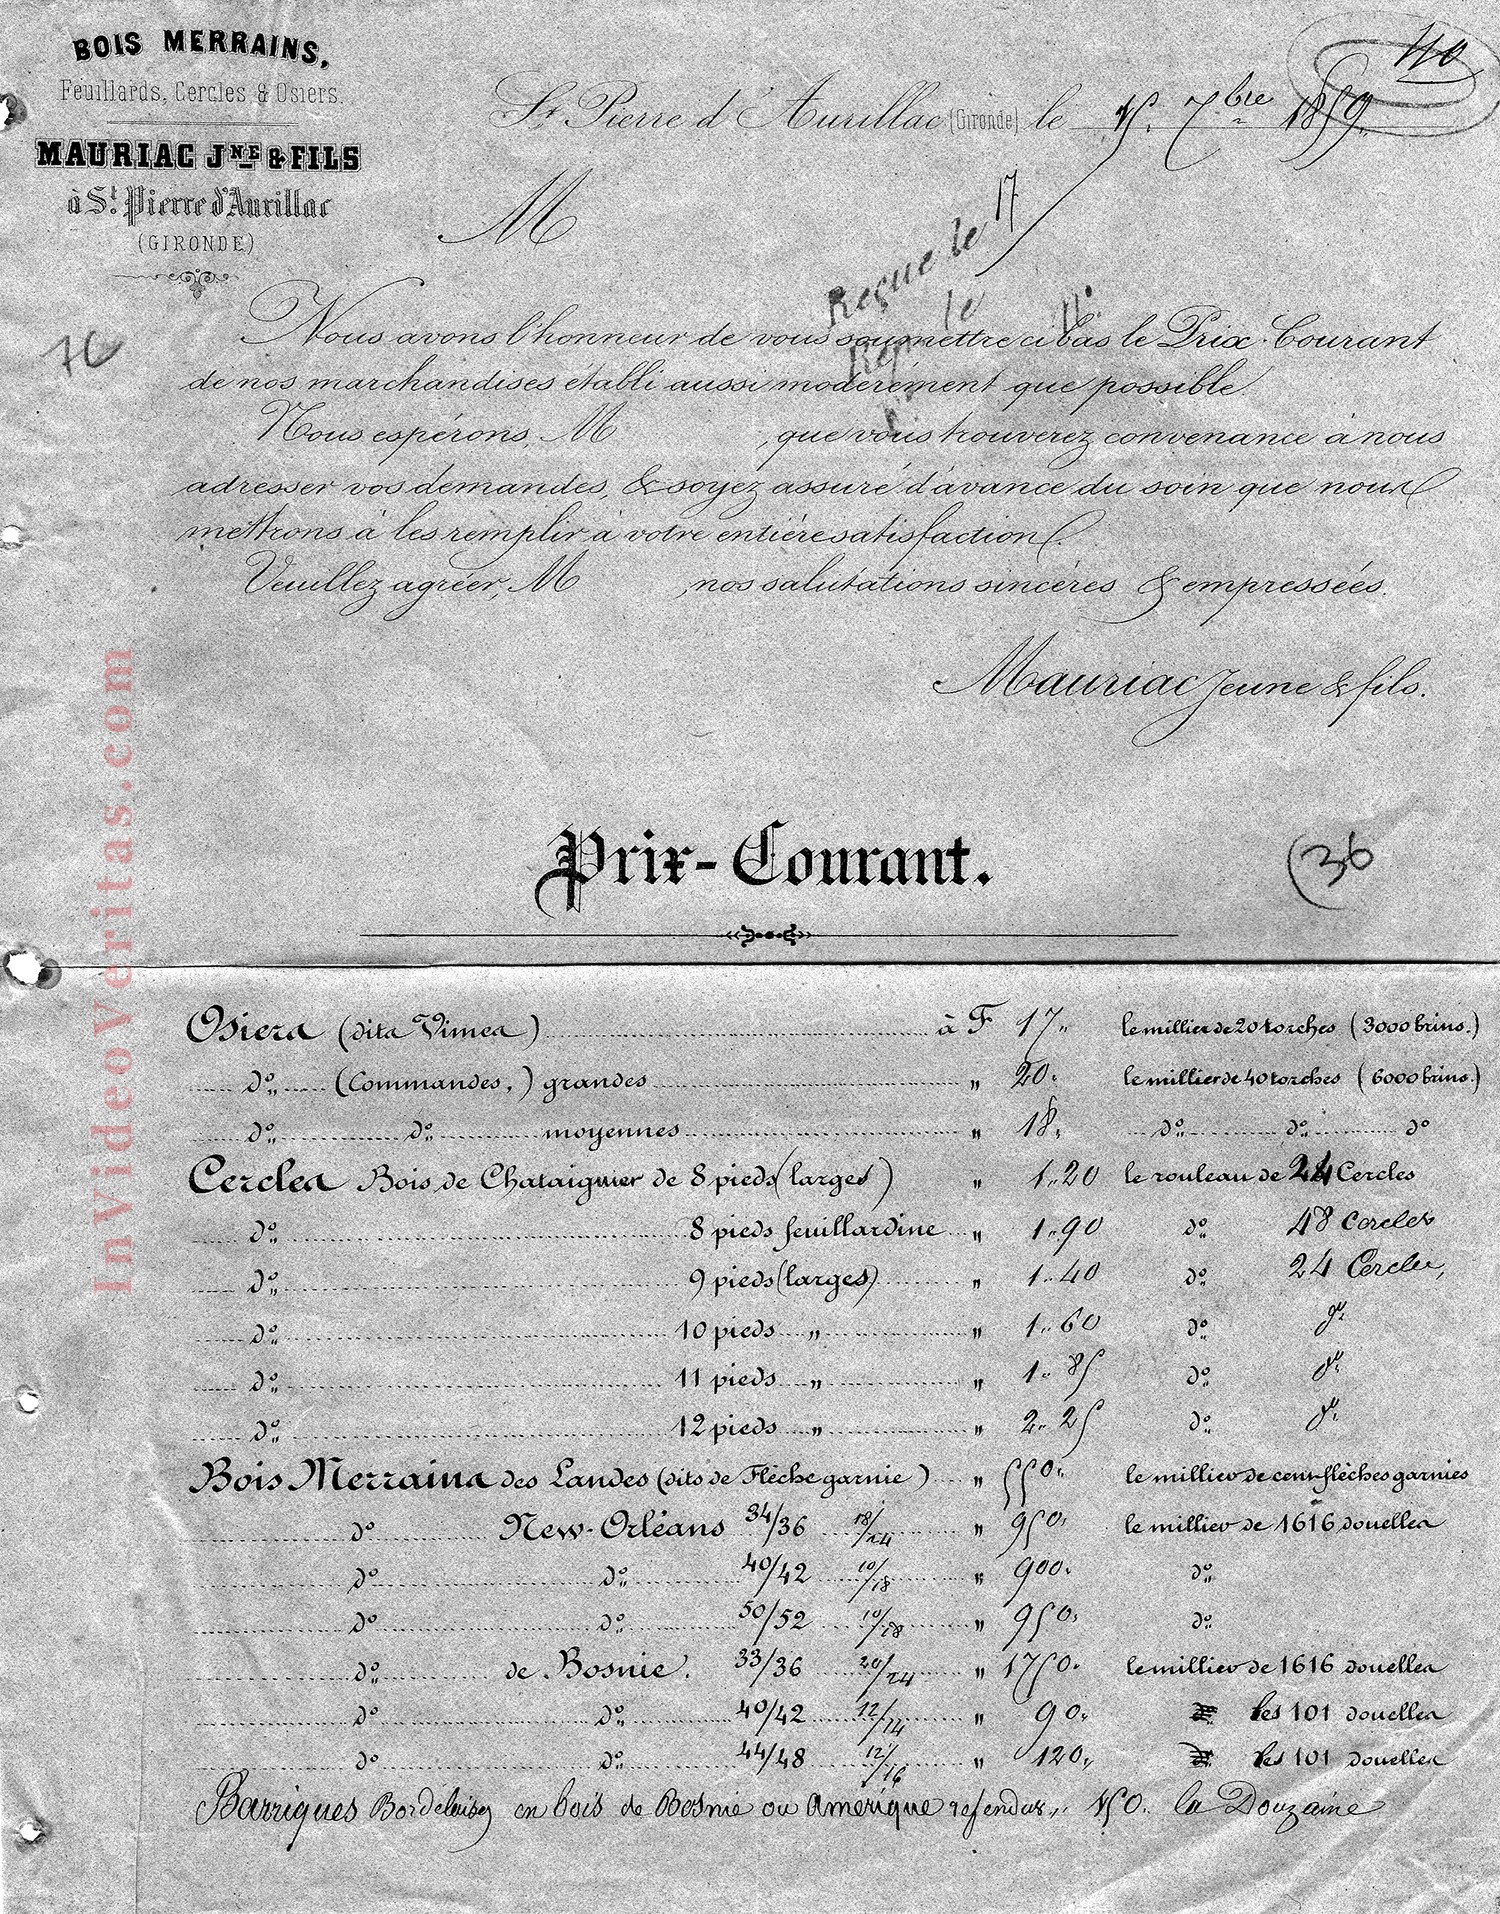 BOIS MERRAINS,
Feuillards, Cercles & Osiers.
MAURIAC JNE & FILS
à St. Pierre d'Aurillac
(GIRONDE)
110
St. Pierre d'Aurillac (Gironde) le 15. 7bre 1859.
M
Reçue le 17
Rép. le
76
Nous avons l'honneur de vous soumettre ci bas le Prix-Courant
de nos marchandises établi aussi modérément que possible.
Nous espérons, M , que vous trouverez convenance à nous
adresser vos demandes, & soyez assuré d'avance du soin que nous
mettrons à les remplir à votre entière satisfaction.
Veuillez agréer, M , nos salutations sincères & empressées.
Mauriac Jeune & fils.
Prix-Courant.
36
Osiers (dits Vimes) à F 17 " le millier de 20 torches (3000 brins.)
do (Commandes,) grandes " 20 " le millier de 40 torches (6000 brins.)
do do moyennes " 18 " do do do
Cercles Bois de Chataignier de 8 pieds (larges) " 1 " 20 le rouleau de 24 Cercles
do 8 pieds feuillardine " 1 " 90 do 48 cercles
do 9 pieds (larges) " 1 " 40 do 24 Cercles,
do 10 pieds " " 1 " 60 do do
do 11 pieds " " 1 " 85 do do
do 12 pieds " " 2 " 25 do do
Bois Merrains des Landes (dits de Flèche garnie) " 550 " le millier de cent flèches garnies
do New-Orléans 34/36 18/24 " 950 " le millier de 1616 douelles
do do 40/42 10/18 " 900 " do
do do 50/52 10/18 " 950 " do
do de Bosnie. 33/36 20/24 " 1750 " le millier de 1616 douelles
do do 40/42 12/14 " 90 " les 101 douelles
do do 44/48 12/16 " 120 " les 101 douelles
Barriques Bordelaises en bois de Bosnie ou amérique refendus " 150 " la Douzaine
InVideoVeritas.com